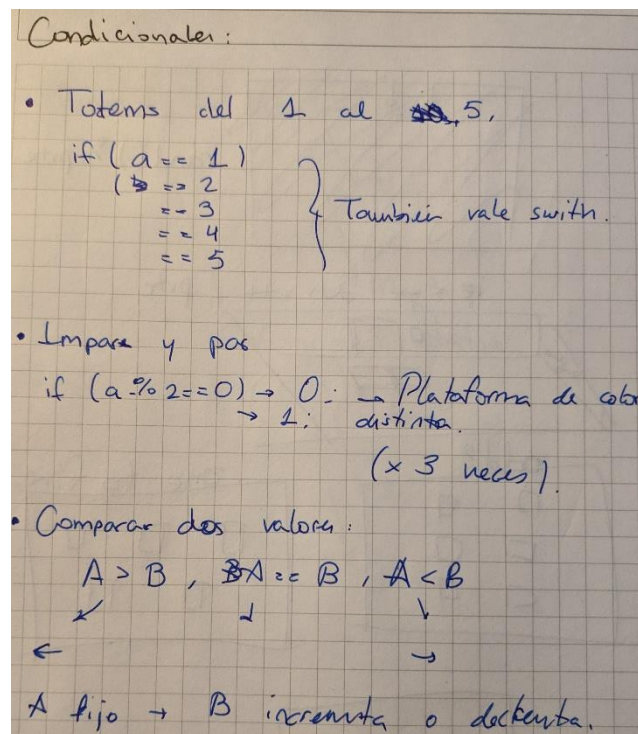 Condicionales:
• Totems del 1 al 5.
if ( a == 1 )
( == 2
== 3
== 4
== 5
También vale swith.
• Impare y par
if (a % 2 == 0) → 0: → Plataforma de color
→ 1: distinta.
(x 3 veces).
• Comparar dos valores:
A > B , A == B , A < B
↙ ↓ ↘
← →
A fijo → B incrementa o